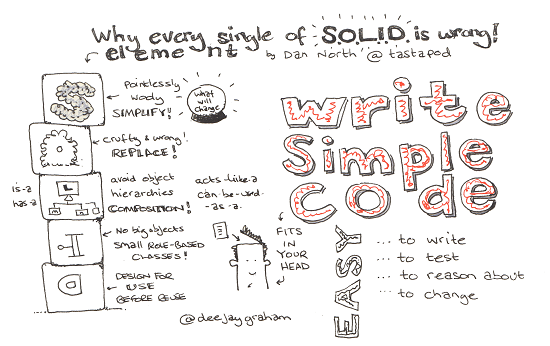 Why every single of S.O.L.I.D. is wrong!
element by Dan North @tastapod
S
Pointlessly
wordy
SIMPLIFY!!
what
will
change
O
crufty & wrong!
REPLACE!
L
is-a
has-a
avoid object
hierarchies
COMPOSITION!
acts-like-a
can be-used-
-as-a.
I
No big objects
Small ROLE-BASED
CLASSES!
D
DESIGN FOR
USE
BEFORE REUSE
FITS
IN
YOUR
HEAD
@deejaygraham
write
Simple
Code
EASY
... to write
... to test
... to reason about
... to change